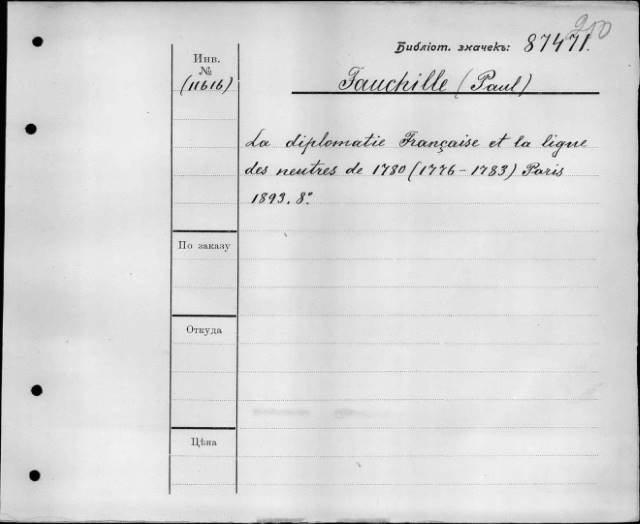 210
Библіот. значекъ: 87471.
Инв.
№
(11616)
Fauchille (Paul)
La diplomatie Française et la ligue
des neutres de 1780 (1776-1783) Paris
1893. 8º
По заказу
Откуда
Цѣна